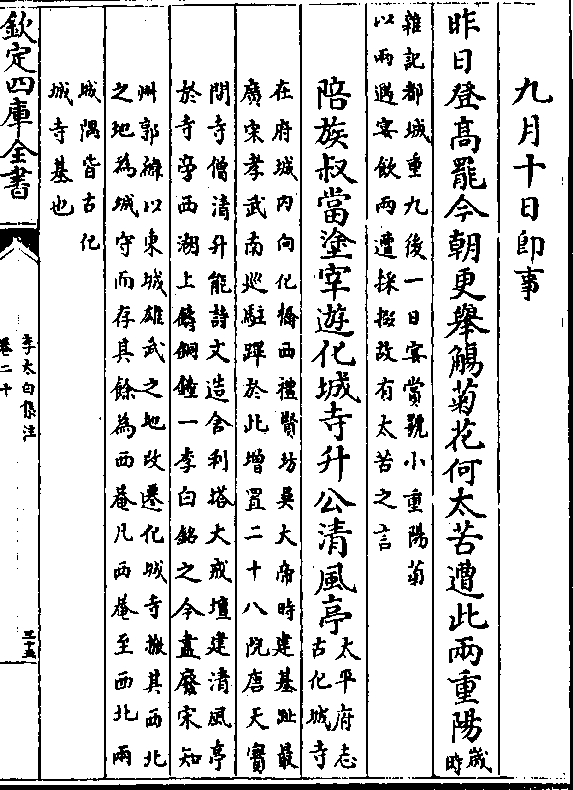 九月十日即事
昨日登高罷今朝更舉觴菊花何太苦遭此兩重陽
歲時
雜記都城重九後一日宴賞號小重陽菊
以兩遇宴飲兩遭採掇故有太苦之言
陪族叔當塗宰遊化城寺升公清風亭
太平府志
古化城寺
在府城内向化橋西禮賢坊吳大帝時建基址最
廣宋孝武南巡駐蹕於此增置二十八院唐天寶
間寺僧清升能詩文造舍利塔大戒壇建清風亭
於寺旁西湖上鑄銅鐘一李白銘之今盡廢宋知
州郭緯以東城雄武之地故遷化城寺撤其西北
之地為城守而存其餘為西菴凡西菴至西北兩
城隅皆古化
城寺基也
欽定四庫全書
李太白集注
卷二十
三十五